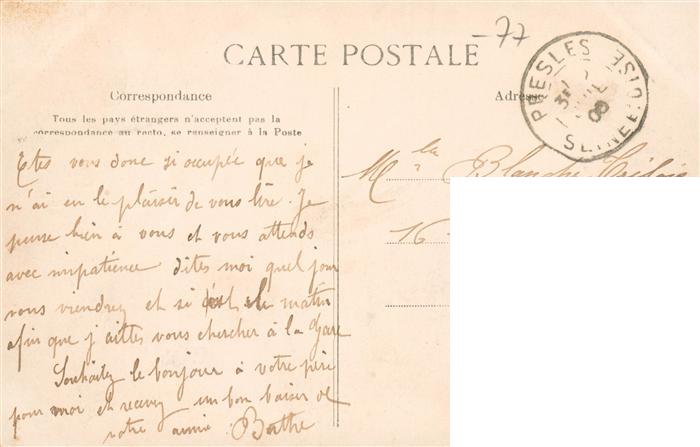 -77
CARTE POSTALE
PRESLES SEINE-ET-OISE
08
Correspondance
Adresse
Tous les pays étrangers n'acceptent pas la
correspondance au recto, se renseigner à la Poste
Etes vous donc si occupée que je
n'ai eu le plaisir de vous lire. Je
pense bien à vous et vous attends
avec impatience dites moi quel jour
vous viendrez et si c'est le matin
afin que j'aittes vous chercher à la gare
Souhaitez le bonjour à votre père
pour moi et recevez un bon baiser de
votre amie. Berthe
Mlle Blanche
16